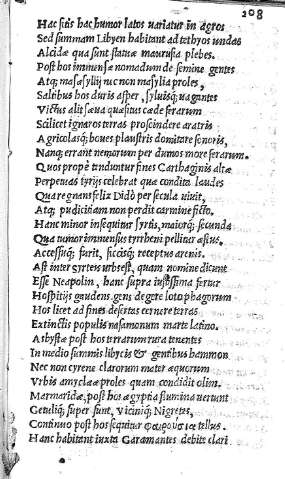 208
Hac sitis hac humor latos uariatur in agros
Sed summam Libyen habitant ad tethyos undas
Alcidæ qua sunt statuæ maurusia plebes.
Post hos immensæ nomadum de semine gentes
Atq; masæsylij nec non masylia proles,
Saltibus hos duris asper, syluisq; uagantes
Victus alit sæua quæsitus cæde ferarum
Scilicet ignaros terras proscindere aratris
Agricolasq; boues plaustris domitare sonoris,
Nanq; errant nemorum per dumos more ferarum.
Quos propè tenduntur fines Carthaginis altæ
Perpetuas tyrijs celebrat quæ condita laudes
Qua regnans felix Didò per secula uiuit,
Atq; pudicitiam non perdit carmine ficto.
Hanc minor insequitur syrtis, maiorq; secunda
Qua tumor immensus tyrrheni pellitur æstus,
Accessuq; furit, siccisq; receptus arenis.
Ast inter syrteis urbs est, quam nomine dicunt
Esse Neapolin, hanc supra iustissima fertur
Hospitijs gaudens gens degere lotophagorum
Hos licet ad fines desertas cernere terras
Extinctis populis nasamonum marte latino.
Asbystæ post hos terrarum rura tenentes
In medio summis libycis & gentibus hammon
Nec non cyrene clarorum mater æquorum
Vrbis amyclææ proles quam condidit olim.
Marmaridæ, post hos ægyptia flumina uertunt
Getuliq; super sunt, Vicinisq; Nigretes,
Continuo post hos sequitur φαυρουσία tellus.
Hanc habitant iuxta Garamantes debite clari